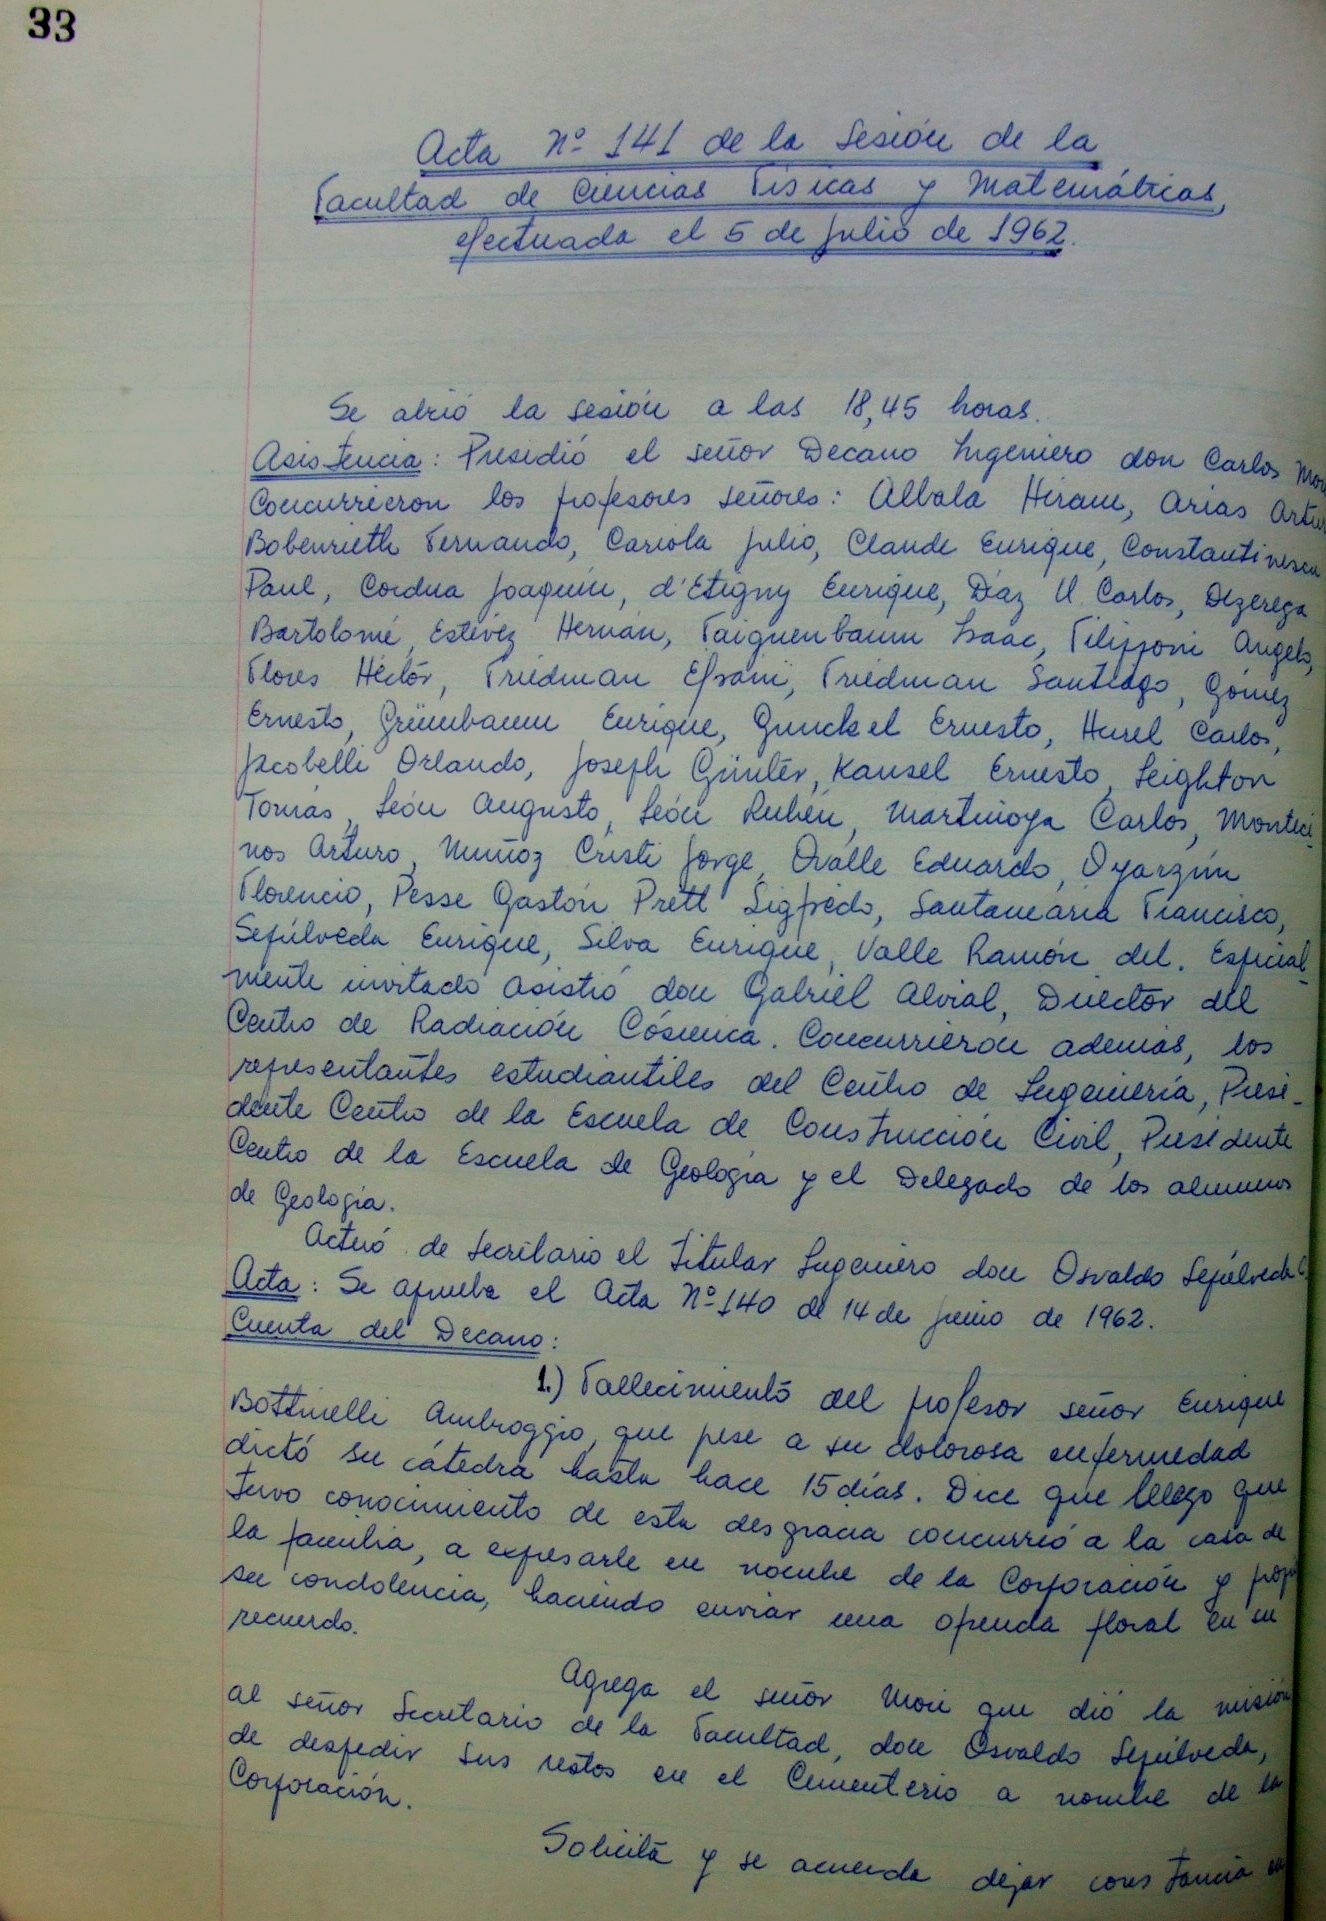 33
Acta Nº 141 de la Sesión de la
Facultad de Ciencias Físicas y Matemáticas,
efectuada el 5 de Julio de 1962.
Se abrió la sesión a las 18,45 horas.
Asistencia: Presidió el señor Decano Ingeniero don Carlos
Concurrieron los profesores señores: Albala Hiram, Arias
Bobenrieth Fernando, Cariola Julio, Claude Enrique, Constantinescu
Paul, Cordua Joaquín, d'Etigny Enrique, Díaz U Carlos, Dezerega
Bartolomé, Estévez Hernán, Faiguenbaum Isaac, Filipponi Angelo,
Flores Héctor, Friedman Efraín, Friedman Santiago, Gómez
Ernesto, Grünnbaum Enrique, Gunckel Ernesto, Hurel Carlos,
Jacobelli Orlando, Joseph Günter, Kausel Ernesto, Leighton
Tomás, León Augusto, León Rubén, Martinoya Carlos, Monteci-
nos Arturo, Muñoz Cristi Jorge, Ovalle Eduardo, Oyarzún
Florencio, Pesse Gastón Prett Sigfredo, Santamaría Francisco,
Sepúlveda Enrique, Silva Enrique, Valle Ramón del. Especial-
mente invitado asistió don Gabriel Alvial, Director del
Centro de Radiación Cósmica. Concurrieron además, los
representantes estudiantiles del Centro de Ingeniería, Presi-
dente Centro de la Escuela de Construcción Civil, Presidente
Centro de la Escuela de Geología y el Delegado de los alumnos
de Geología.
Actuó de Secretario el titular Ingeniero don Osvaldo Sepúlveda C.
Acta: Se aprueba el Acta Nº 140 de 14 de junio de 1962.
Cuenta del Decano:
1.) Fallecimiento del profesor señor Enrique
Bottinelli Ambroggio, que pese a su dolorosa enfermedad
dictó su cátedra hasta hace 15 días. Dice que luego que
tuvo conocimiento de esta desgracia concurrió a la casa de
la familia, a expresarle en nombre de la Corporación y
su condolencia, haciendo enviar una ofrenda floral en su
recuerdo.
Agrega el señor Mori que dió la misión
al señor Secretario de la Facultad, don Osvaldo Sepúlveda,
de despedir sus restos en el Cementerio a nombre de la
Corporación.
Solicita y se acuerda dejar constancia en